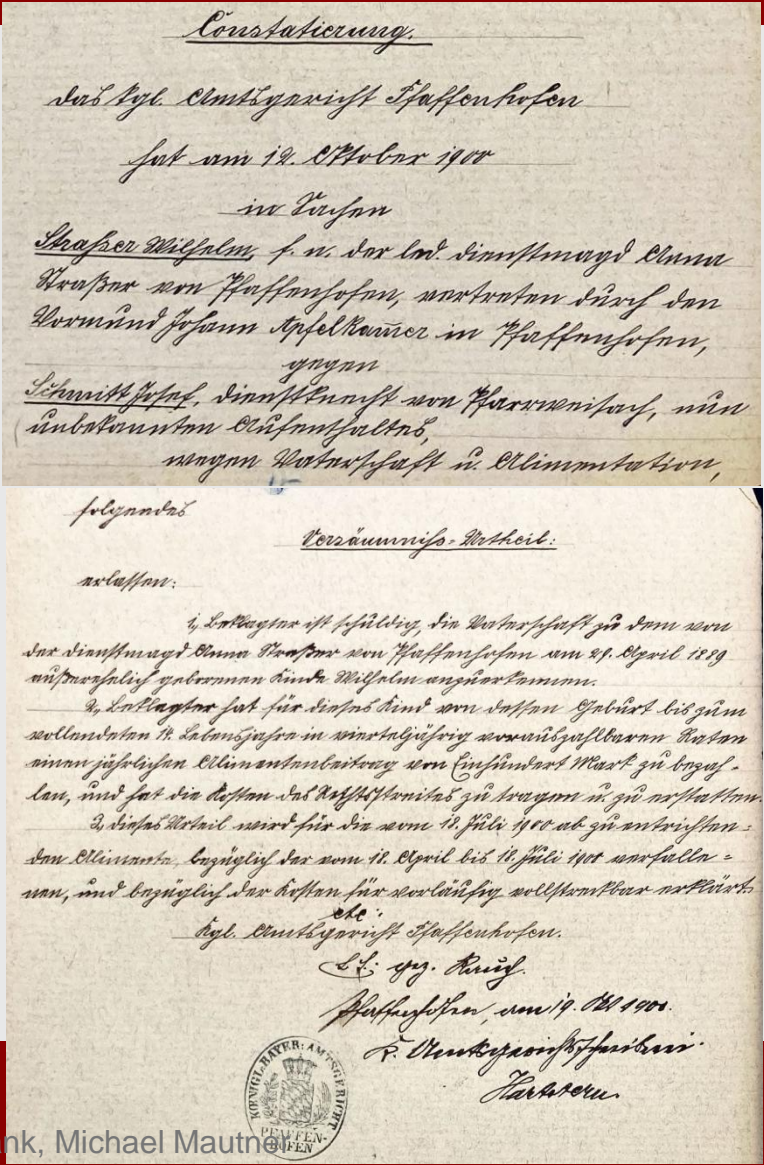 Constatierung.
Das kgl. Amtsgericht Pfaffenhofen
hat am 12. Oktober 1900
in Sachen
Straßer Wilhelm, f. n. der led. Dienstmagd Anna
Straßer von Pfaffenhofen, vertreten durch den
Vormund Johann Apfelkam̄er in Pfaffenhofen,
gegen
Schmitt Josef, Dienstknecht von Pfarrweisach, nun
unbekannten Aufenthaltes,
wegen Vaterschaft u. Alimentation,
folgendes
Versäumniß-Urtheil:
erlassen:
1, Beklagter ist schuldig, die Vaterschaft zu dem von
der Dienstmagd Anna Straßer von Pfaffenhofen am 29. April 1889
außerehelich geborenen Kinde Wilhelm anzuerkennen.
2, Beklagter hat für dieses Kind von dessen Geburt bis zum
vollendeten 14. Lebensjahre in vierteljährig vorauszahlbaren Raten
einen jährlichen Alimentenbeitrag von Einhundert Mark zu bezah-
len, und hat die Kosten des Rechtsstreites zu tragen u. zu erstatten.
3, Dieses Urteil wird für die vom 18. Juli 1900 ab zu entrichten-
den Alimente, bezüglich der vom 18. April bis 18. Juli 1900 verfalle-
nen, und bezüglich der Kosten für vorläufig vollstreckbar erklärt.
etc.
Kgl. Amtsgericht Pfaffenhofen.
gez. Rauch.
Pfaffenhofen, am 19. Okt 1900.
K. Amtsgerichtsschreiberei.
KOENIGL. BAYER. AMTSGERICHT
PFAFFEN-
HOFEN
nk, Michael Mautner